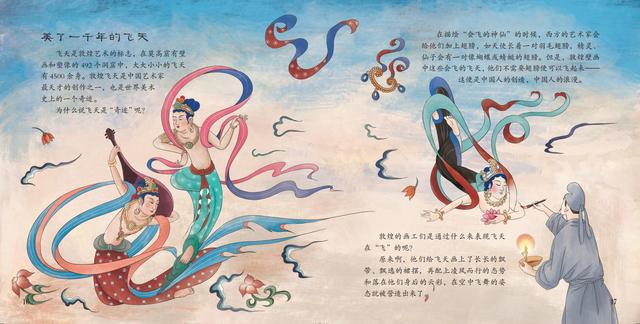 美了一千年的飞天
飞天是敦煌艺术的标志，在莫高窟有壁
画和塑像的 492 个洞窟中，大大小小的飞天
有 4500 余身。敦煌飞天是中国艺术家
最天才的创作之一，也是世界美术
史上的一个奇迹。
为什么说飞天是“奇迹”呢？
在描绘“会飞的神仙”的时候，西方的艺术家会
给他们加上翅膀，如天使长着一对羽毛翅膀，精灵、
仙子会有一对像蝴蝶或蜻蜓的翅膀。但是，敦煌壁画
中这些会飞的飞天，他们不需要翅膀便可以飞起来——
这便是中国人的创造，中国人的浪漫。
敦煌的画工们是通过什么来表现飞天
在“飞”的呢？
原来啊，他们给飞天画上了长长的飘
带、飘逸的裙摆，再配上凌风而行的态势
和落在他们身后的云彩，在空中飞舞的姿
态就被营造出来了。